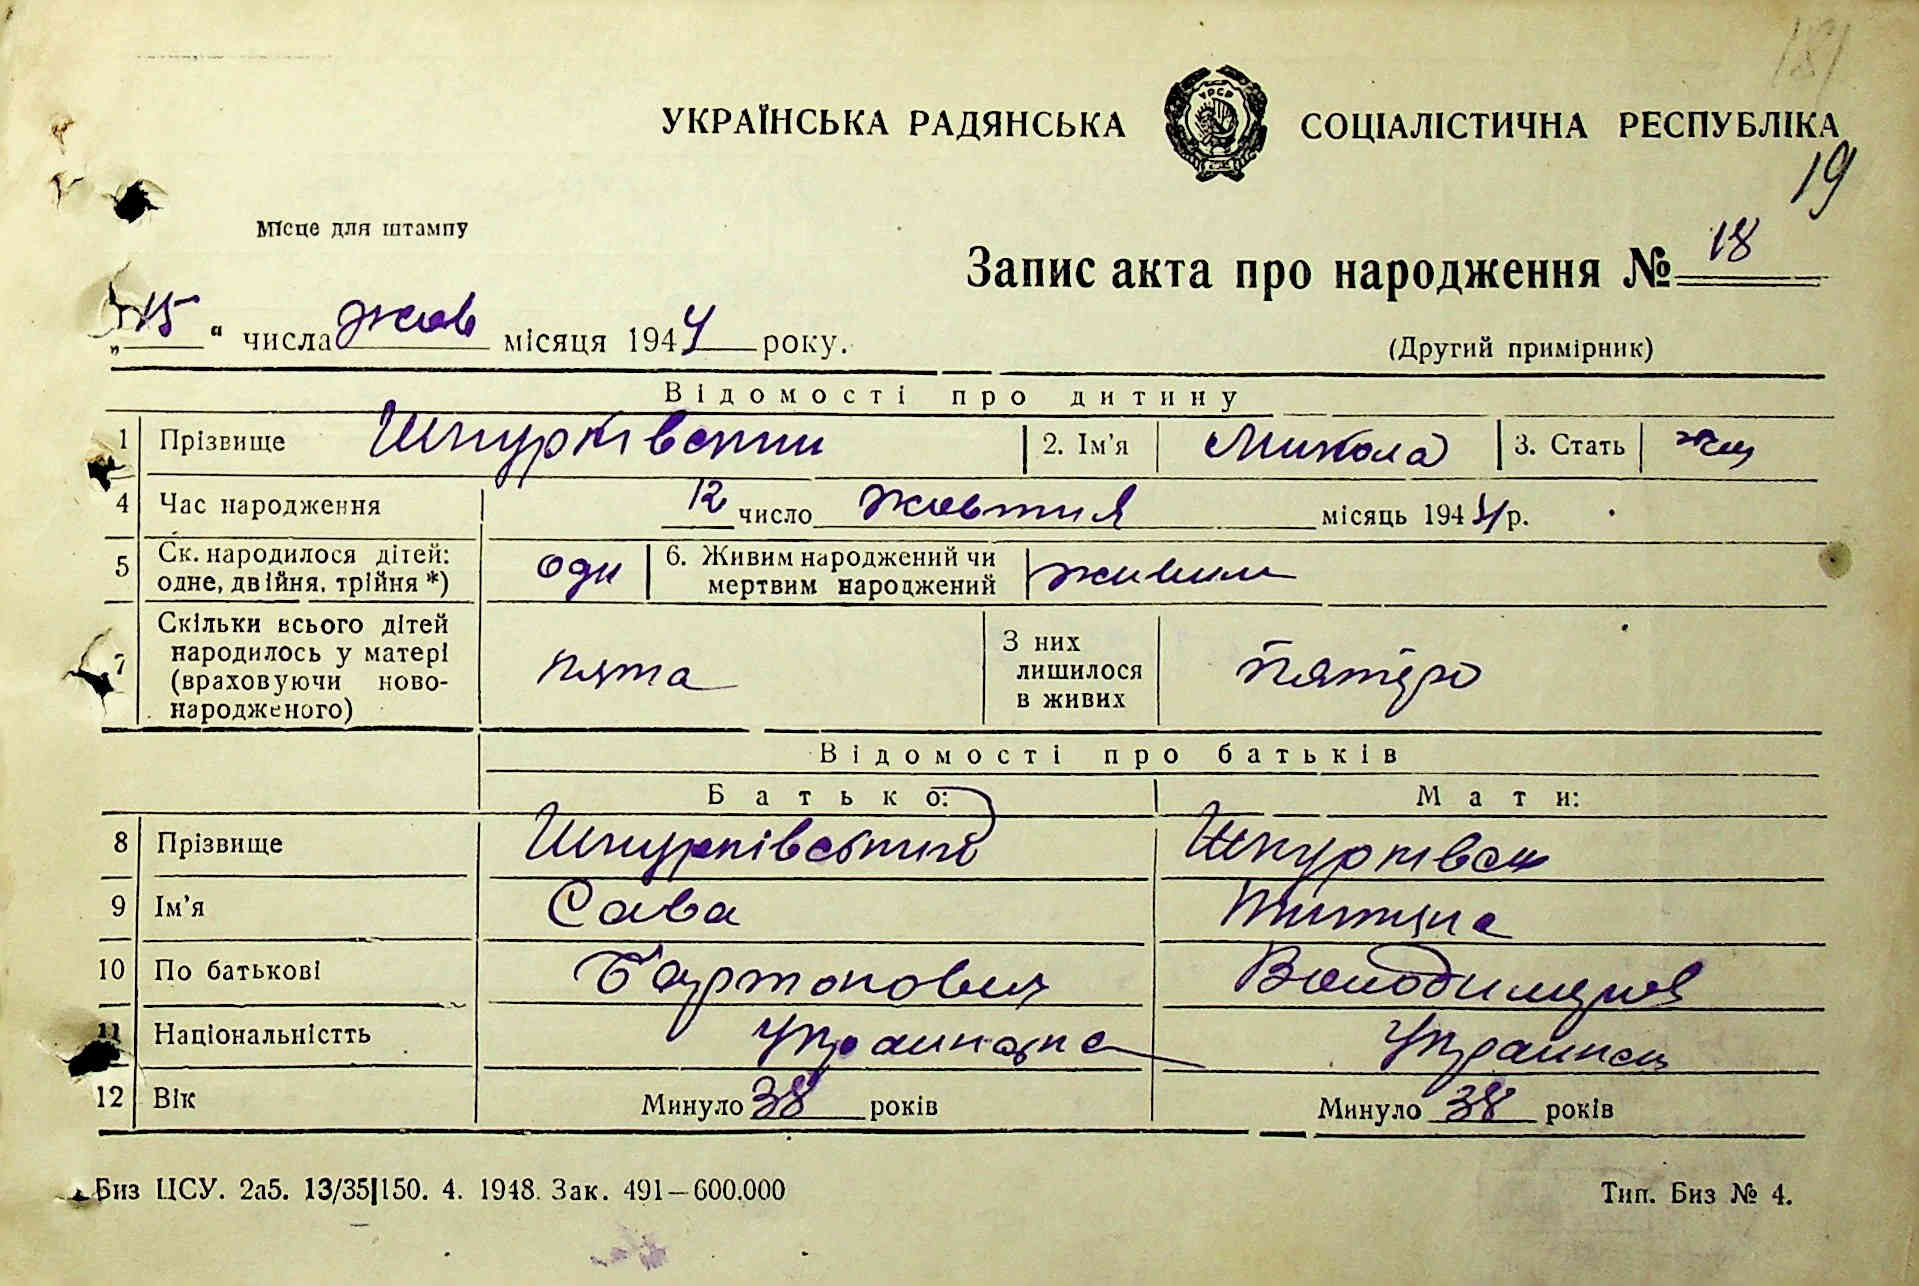 181
УКРАЇНСЬКА РАДЯНСЬКА СОЦІАЛІСТИЧНА РЕСПУБЛІКА
19
Місце для штампу
Запис акта про народження № 18
„15“ числа жов місяця 1944 року.
(Другий примірник)
Відомості про дитину
1 Прізвище Шпурківський 2. Ім'я Микола 3. Стать
4 Час народження 12 число жовтня місяць 1944 р.
5 Ск. народилося дітей: одне, двійня, трійня *) одн 6. Живим народжений чи мертвим народжений живим
7 Скільки всього дітей народилось у матері (враховуючи новонародженого) пята З них лишилося в живих пятеро
Відомості про батьків
Батько: Мати:
8 Прізвище Шпурківський Шпурківськ
9 Ім'я Сава
10 По батькові Володимиров
11 Національністть Украинец
12 Вік Минуло 38 років Минуло 38 років
Биз ЦСУ. 2а5. 13/35|150. 4. 1948. Зак. 491—600.000
Тип. Биз № 4.